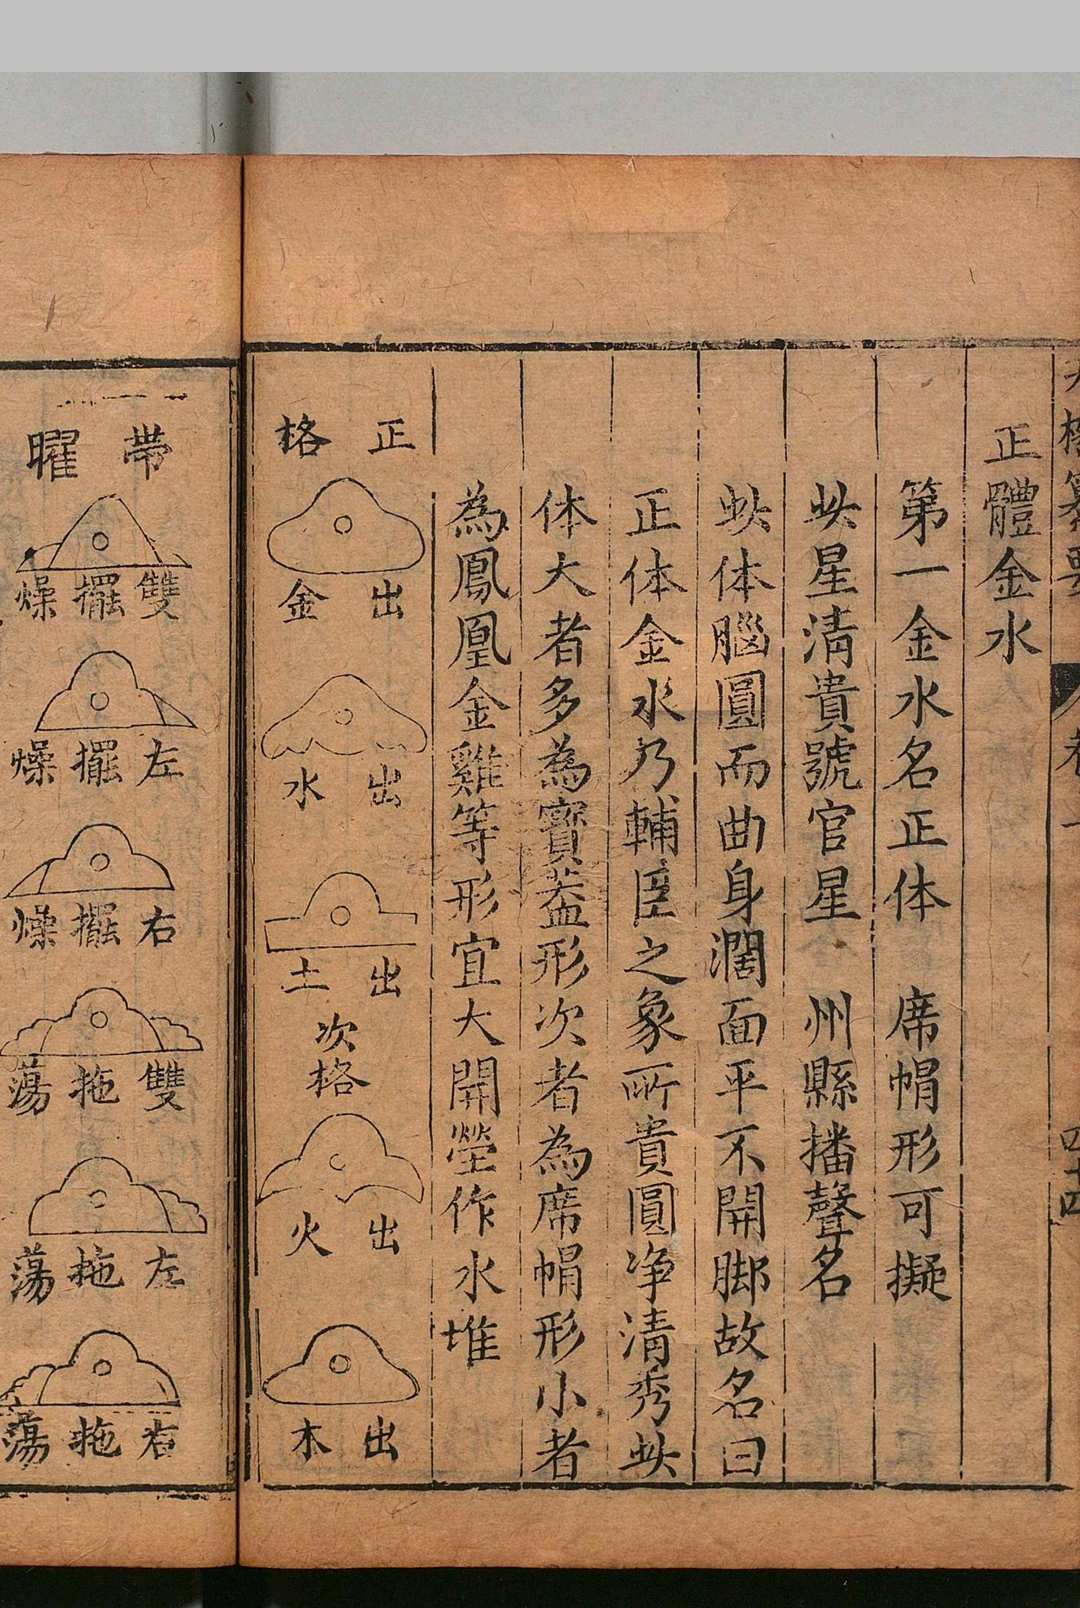 卷一
四十四
正體金水
第一金水名正体 席帽形可擬
𡿨星清貴號官星 州縣播聲名
𡿨体腦圓而曲身濶面平不開脚故名曰
正体金水乃輔臣之象所貴圓净清秀𡿨
体大者多為寳葢形次者為席帽形小者
為鳳凰金雞等形宜大開塋作水堆
正格
出金
出水
出土
次格
出火
出木
帶曜
雙擺燥
左擺燥
右擺燥
雙拖蕩
左拖蕩
右拖蕩